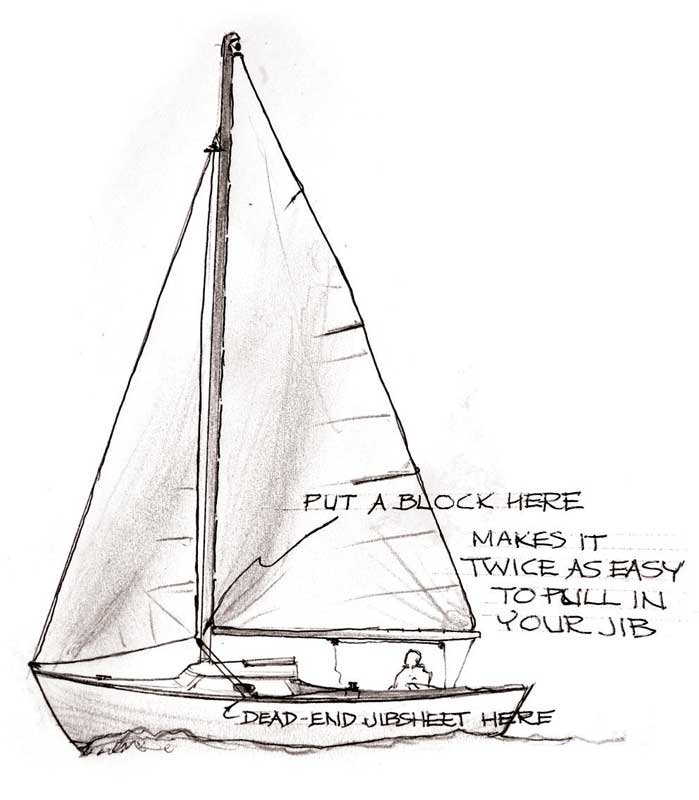 PUT A BLOCK HERE
MAKES IT
TWICE AS EASY
TO PULL IN
YOUR JIB
DEAD-END JIBSHEET HERE